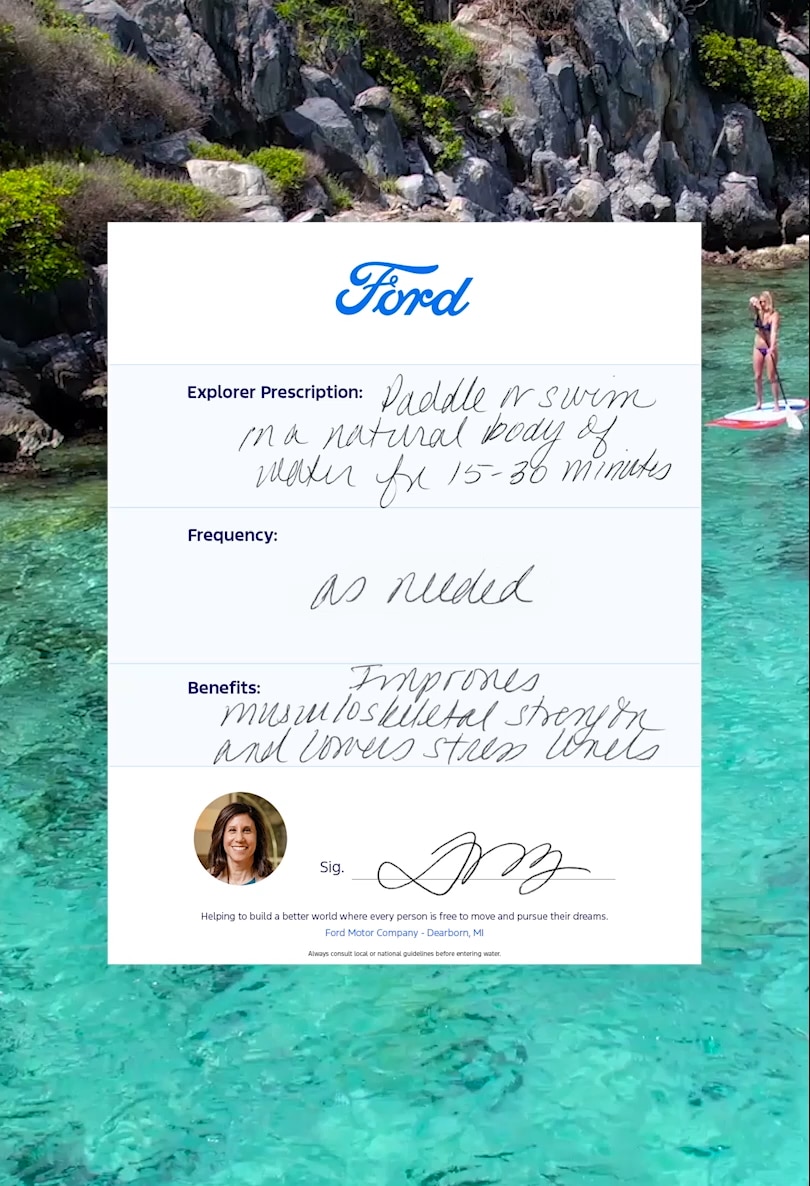 Ford
Explorer Prescription: Paddle or swim
in a natural body of
water for 15-30 minutes
Frequency:
as needed
Benefits: Improves
musculoskeletal strength
and lowers stress levels
Sig.
Helping to build a better world where every person is free to move and pursue their dreams.
Ford Motor Company - Dearborn, MI
Always consult local or national guidelines before entering water.